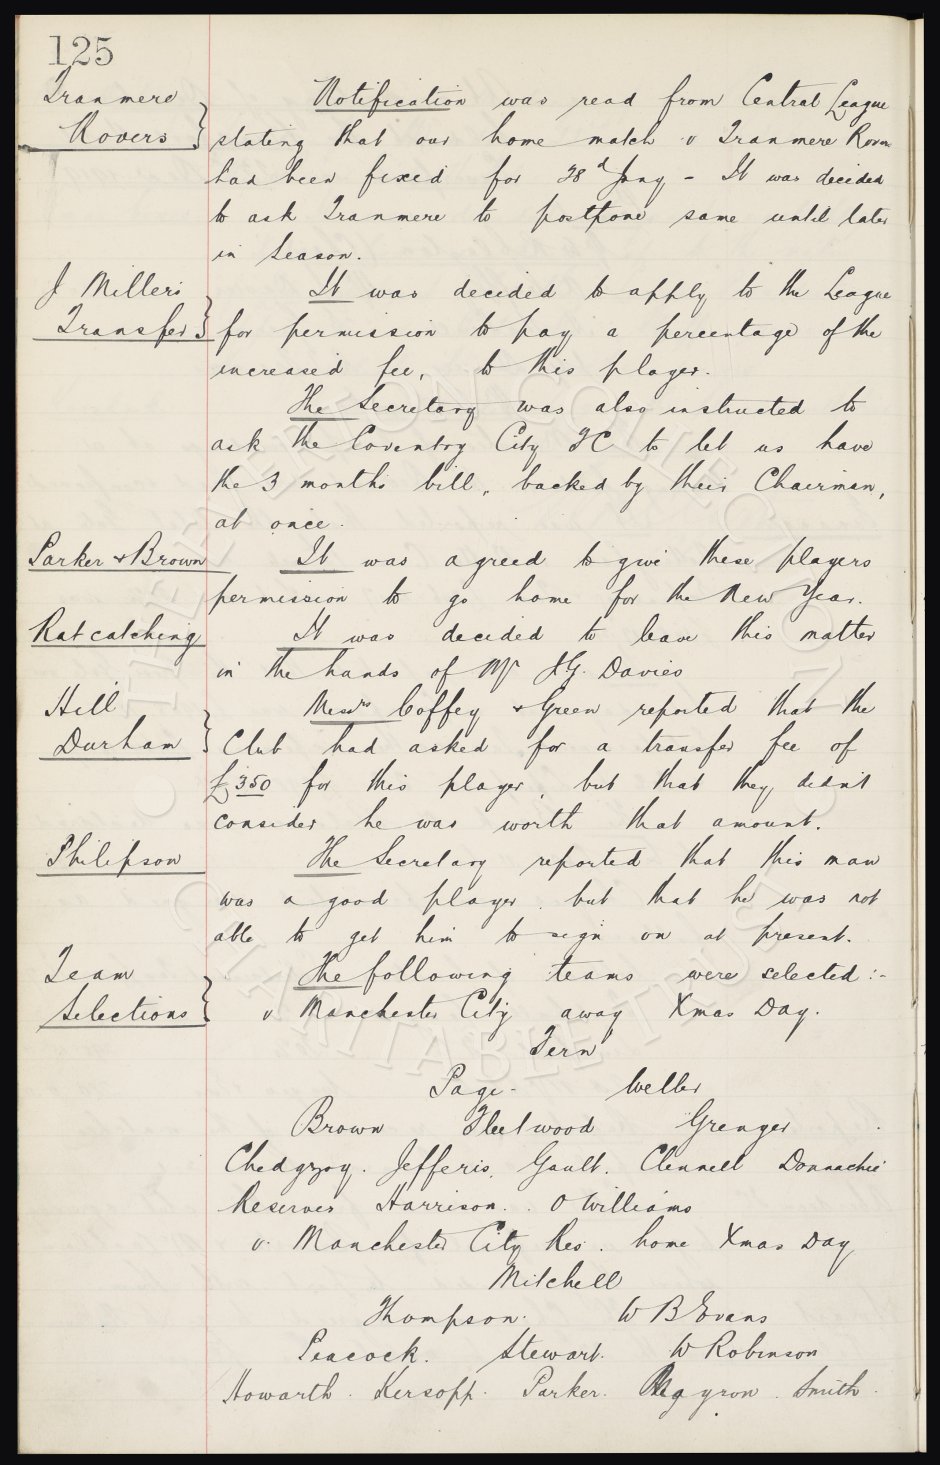 125
Tranmere
Rovers
Notification was read from Central League
stating that our home match v Tranmere Rovers
had been fixed for 28d Jany - It was decided
to ask Tranmere to postpone same until later
in Season.
J Miller's
Transfer
It was decided to apply to the League
for permission to pay a percentage of the
increased fee, to this player.
The Secretary was also instructed to
ask the Coventry City FC to let us have
the 3 months bill, backed by their Chairman,
at once.
Parker & Brown
It was agreed to give these players
permission to go home for the New Year.
Rat catching
It was decided to leave this matter
in the hands of Mr J.G. Davies
Hill
Durham
Messrs Coffey & Green reported that the
Club had asked for a transfer fee of
£350 for this player, but that they didn't
consider he was worth that amount.
Philipson
The Secretary reported that this man
was a good player but that he was not
able to get him to sign on at present.
Team
Selections
The following teams were selected :-
v Manchester City away Xmas Day.
Fern
Page. Weller
Brown Fleetwood Grenyer
Chedgzoy. Jefferis. Gault. Clennell Donnachie
Reserves Harrison. O Williams
v. Manchester City Res. home Xmas Day
Mitchell
Thompson. W B Evans
Peacock. Stewart. W Robinson
Howarth. Kersopp. Parker. Mayron. Smith.
THE EVERTON COLLECTION
CHARITABLE TRUST